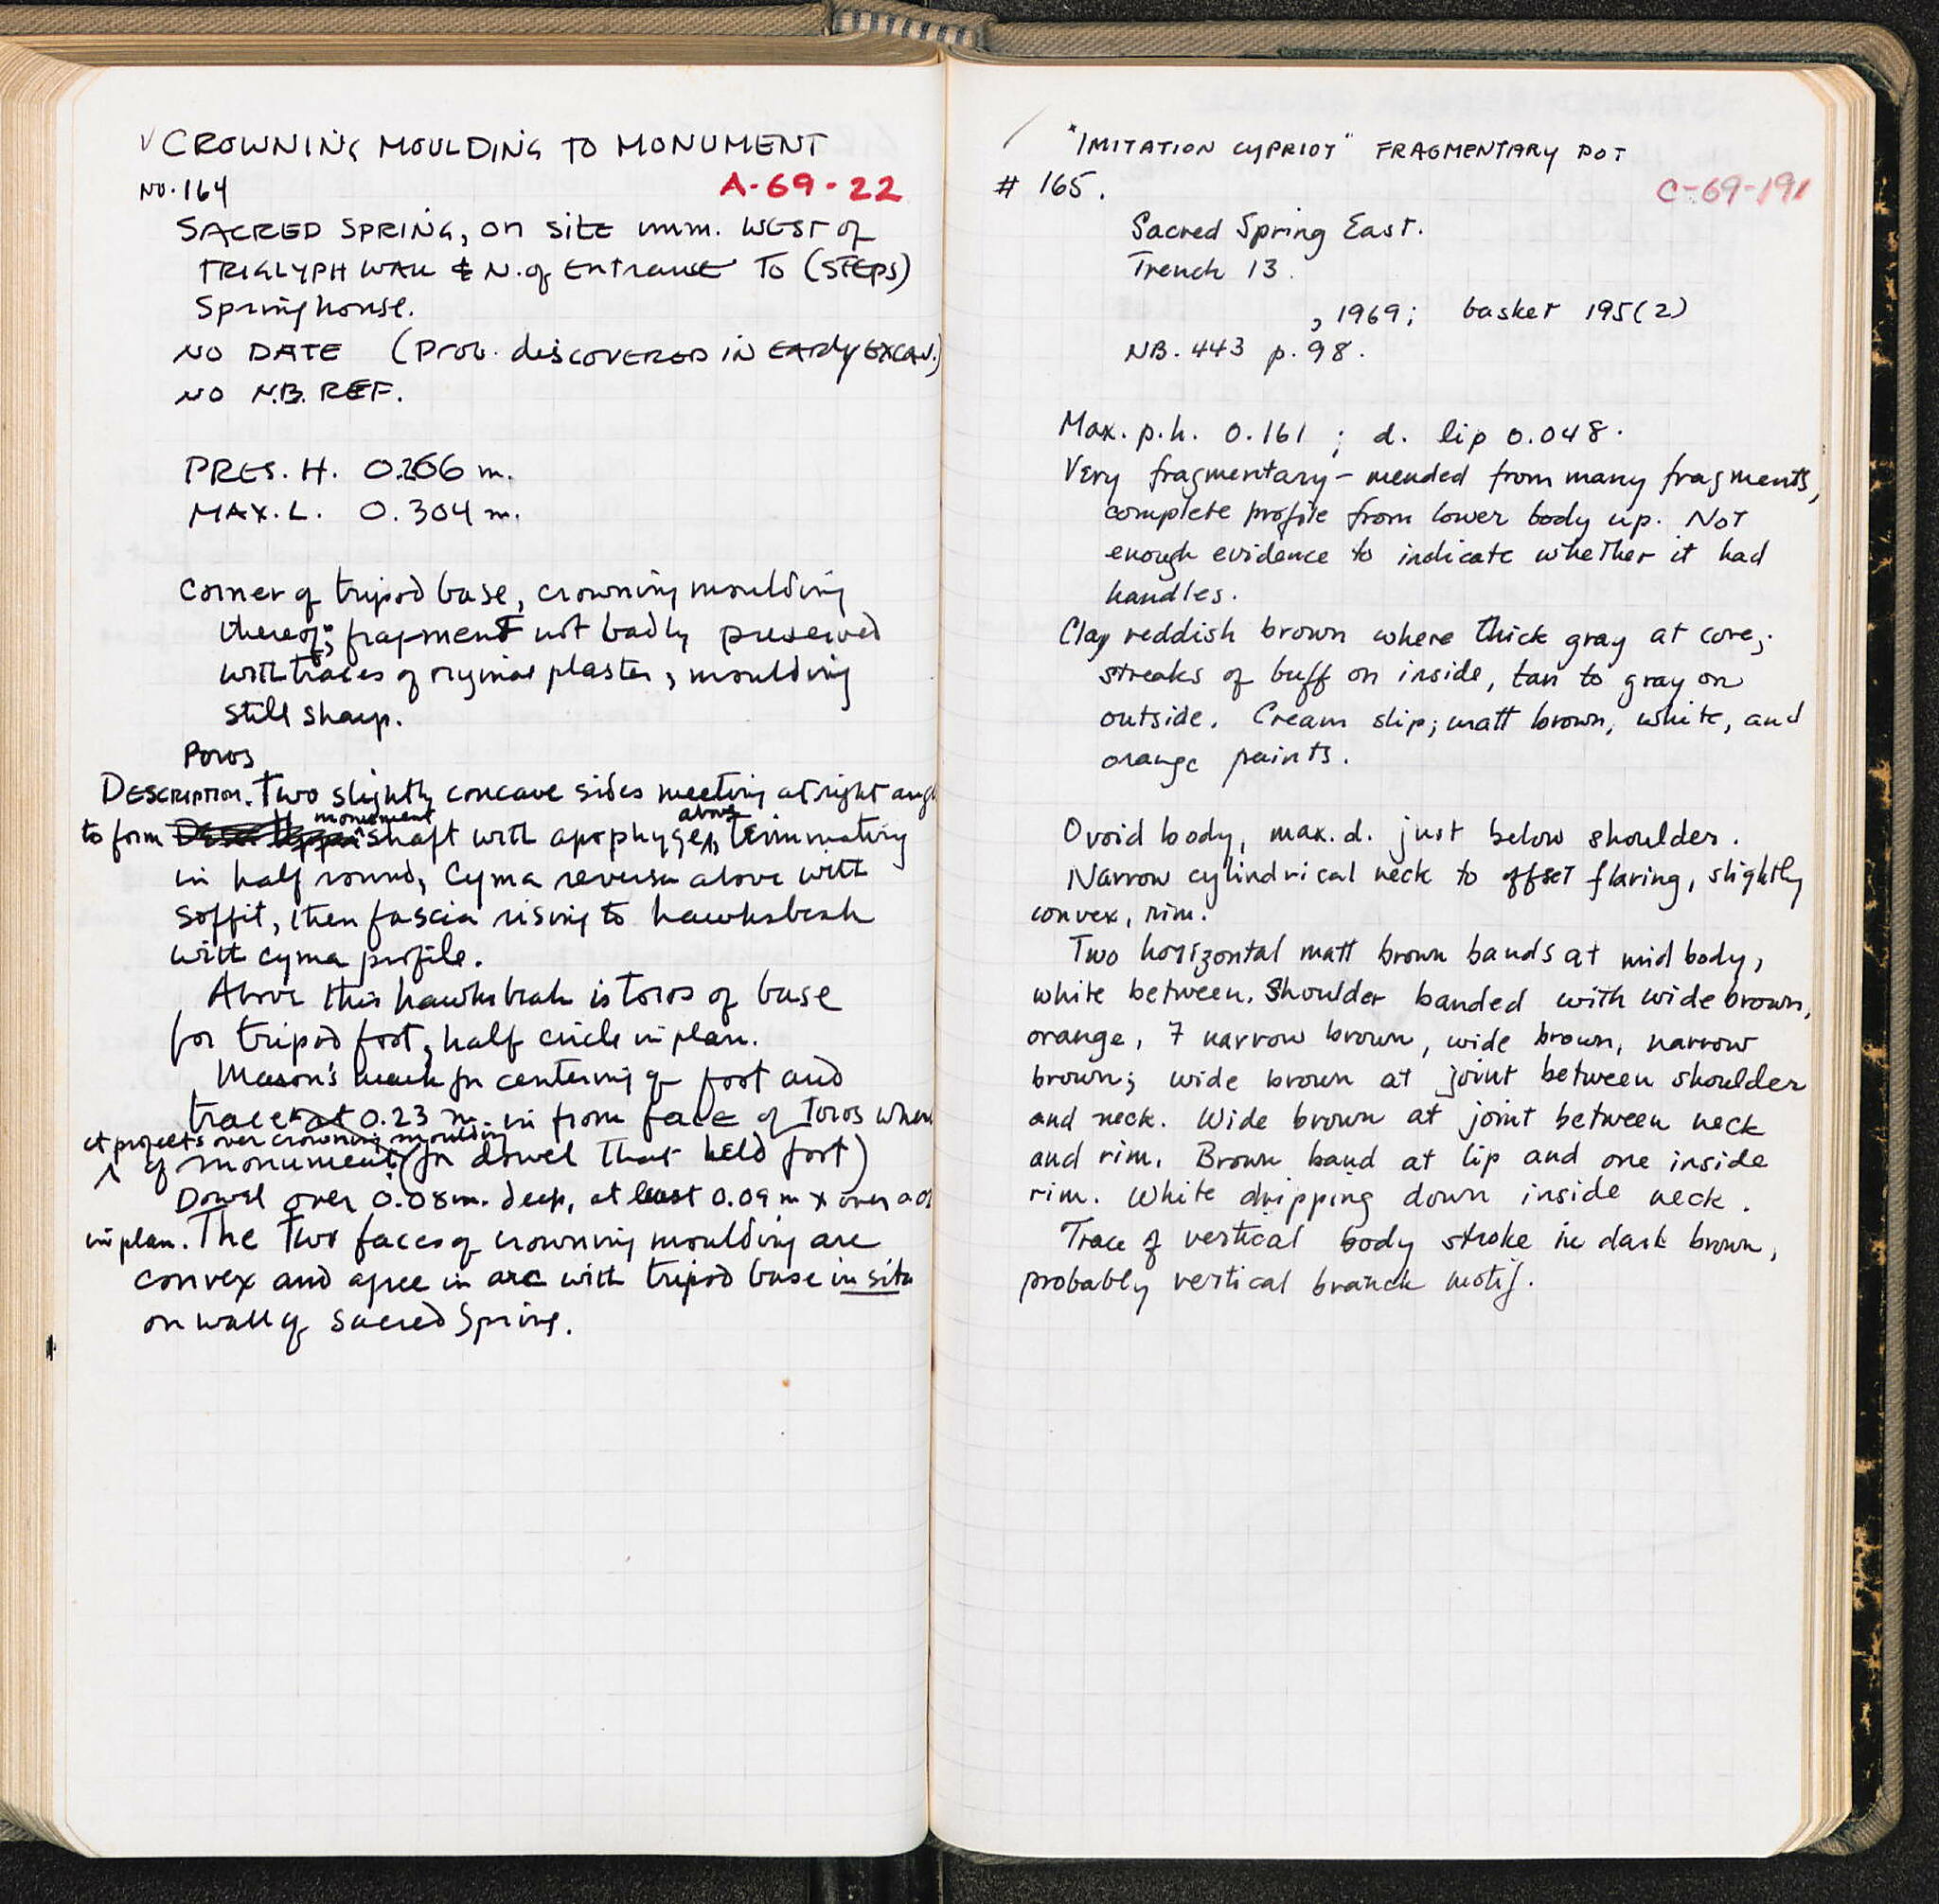 ✓ CROWNING MOULDING TO MONUMENT
NO. 164 A-69-22
SACRED SPRING, on site imm. WEST of
TRIGLYPH WALL & N. of Entrance TO (STEPS)
Springhouse.
NO DATE (Prob. discovered in early excav.)
NO N.B. REF.
PRES. H. 0.266 m.
MAX. L. 0.304 m.
Corner of tripod base, crowning moulding
thereof; fragment not badly preserved
with traces of original plaster, moulding
still sharp.
Poros
Description. Two slightly concave sides meeting at right
to form monument shaft with apophyge above, terminating
in half round, cyma reversa above with
soffit, then fascia rising to hawksbeak
with cyma profile.
Above this hawksbeak is toros of base
for tripod foot, half circle in plan.
Mason's mark for centering of foot and
trace at 0.23 m. in from face of toros where
it projects over crowning moulding
of monument (for dowel that held foot)
Dowel over 0.08 m. deep, at least 0.09 m x over
in plan. The two faces of crowning moulding are
convex and agree in arc with tripod base in situ
on wall of Sacred Spring.
"IMITATION CYPRIOT" FRAGMENTARY POT
# 165. C-69-191
Sacred Spring East.
Trench 13.
, 1969; basket 195(2)
NB. 443 p. 98.
Max. p.h. 0.161 ; d. lip 0.048.
Very fragmentary - mended from many fragments,
complete profile from lower body up. Not
enough evidence to indicate whether it had
handles.
Clay reddish brown where thick gray at core;
streaks of buff on inside, tan to gray on
outside. Cream slip; matt brown, white, and
orange paints.
Ovoid body, max. d. just below shoulder.
Narrow cylindrical neck to offset flaring, slightly
convex, rim.
Two horizontal matt brown bands at mid body,
white between. Shoulder banded with wide brown,
orange, 7 narrow brown, wide brown, narrow
brown; wide brown at joint between shoulder
and neck. Wide brown at joint between neck
and rim. Brown band at lip and one inside
rim. White dripping down inside neck.
Trace of vertical body stroke in dark brown,
probably vertical branch motif.